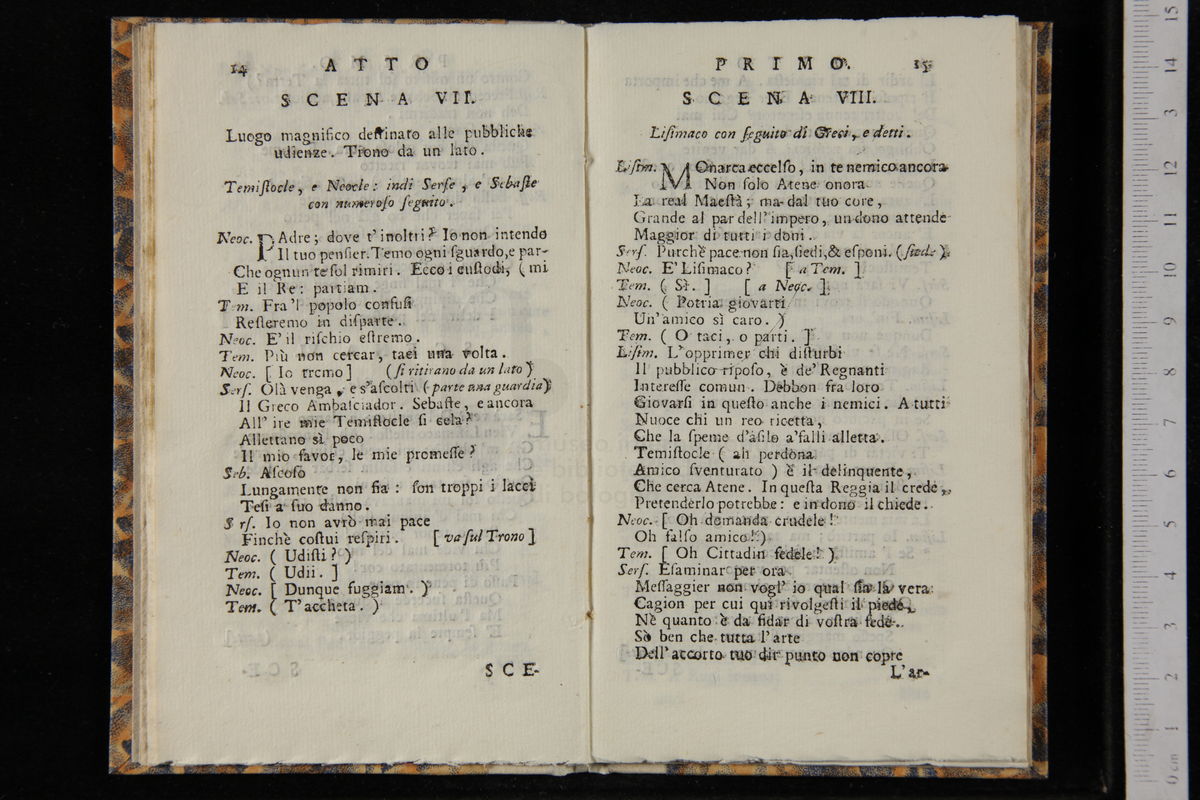 14 ATTO
SCENA VII.
Luogo magnifico deſtinato alle pubbliche
udienze. Trono da un lato.
Temiſtocle, e Neocle: indi Serſe, e Sebaſte
con numeroſo ſeguito.
Neoc. PAdre; dove t'inoltri? Io non intendo
Il tuo penſier. Temo ogni ſguardo, e par-
Che ognun te ſol rimiri. Ecco i cuſtodi, ( mi
E il Re: partiam.
Tem. Fra 'l popolo confuſi
Reſteremo in diſparte.
Neoc. E' il riſchio eſtremo.
Tem. Più non cercar, taci una volta.
Neoc. [ Io tremo ] (ſi ritirano da un lato)
Serſ. Olà venga, e s'aſcolti (parte una guardia)
Il Greco Ambaſciador. Sebaſte, e ancora
All' ire mie Temiſtocle ſi cela?
Allettano sì poco
Il mio favor, le mie promeſſe?
Seb. Aſcoſo
Lungamente non fia: ſon troppi i lacci
Teſi a ſuo danno.
S rſ. Io non avrò mai pace
Finchè coſtui reſpiri. [ va ſul Trono ]
Neoc. ( Udiſti? )
Tem. ( Udii. ]
Neoc. [ Dunque fuggiam. )
Tem. ( T'accheta. )
SCE-
PRIMO. 15
SCENA VIII.
Liſimaco con ſeguito di Greci, e detti.
Liſim. MOnarca eccelſo, in te nemico ancora
Non ſolo Atene onora
La real Maeſtà; ma dal tuo core,
Grande al par dell' impero, un dono attende
Maggior di tutti i doni.
Serſ. Purchè pace non ſia, ſiedi, & eſponi. (ſiede)
Neoc. E' Liſimaco? [ a Tem. ]
Tem. ( Sì. ] [ a Neoc. ]
Neoc. ( Potria giovarti
Un' amico sì caro. )
Tem. ( O taci, o parti. ]
Liſim. L'opprimer chi diſturbi
Il pubblico ripoſo, è de' Regnanti
Intereſſe comun. Debbon fra loro
Giovarſi in queſto anche i nemici. A tutti
Nuoce chi un reo ricetta,
Che la ſpeme d'aſilo a' falli alletta.
Temiſtocle ( ah perdona
Amico ſventurato ) è il delinquente,
Che cerca Atene. In queſta Reggia il crede,
Pretenderlo potrebbe: e in dono il chiede.
Neoc. [ Oh domanda crudele!
Oh falſo amico! )
Tem. [ Oh Cittadin fedele! )
Serſ. Eſaminar per ora
Meſſaggier non vogl' io qual ſia la vera
Cagion per cui qui rivolgeſti il piede,
Nè quanto è da fidar di voſtra fede.
So ben che tutta l'arte
Dell' accorto tuo dir punto non copre
L'ar-